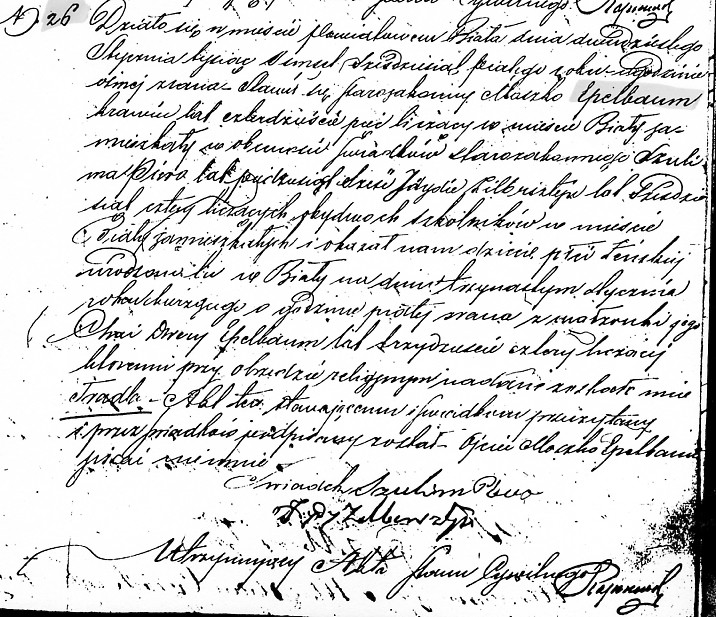 26
Działo się w mieście powiatowem Biała dnia dwudziestego
Stycznia tysiąc osiemset sześdziesiąt piątego roku o godzinie
ósmej zrana. Stawił się starozakonny Moszko Epelbaum
lat czterdzieści pięć liczący w mieście Biały za-
mieszkały w obecności świadków starozakonnego Szuli-
ma Piwo lat sześć Jzydie Zilbersztejn lat sześdzie-
siąt cztery liczących obydwoch szkolników w mieście
Biały zamieszkałych i okazał nam dziecie płci żeńskiej
urodzone tu w Biały na dniu trzynastym stycznia
roku bieżącego o godzinie piątej zrana z małżonki jego
Chai Dwery Epelbaum lat trzydzieści cztery liczący
któremu przy obrzędzie religijnym nadane zostało imie
Fradla - Akt ten stawającemu i świadkom przeczytany
i przez świadków podpisany został - Ojciec Moszko Epelbaum
pisać nie umie
Świadek Szulim Piwo
Utrzymujący Akta Stanu Cywilnego